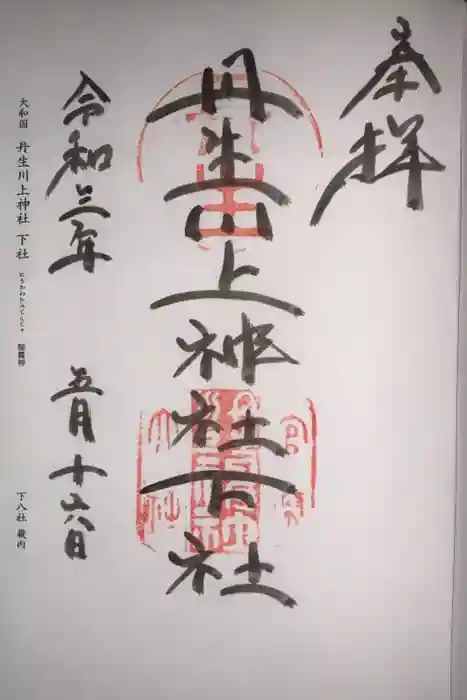 奉拝
丹生川上神社下社
令和三年 五月十六日
大和国 丹生川上神社 下社
にうかわかみじんじゃ